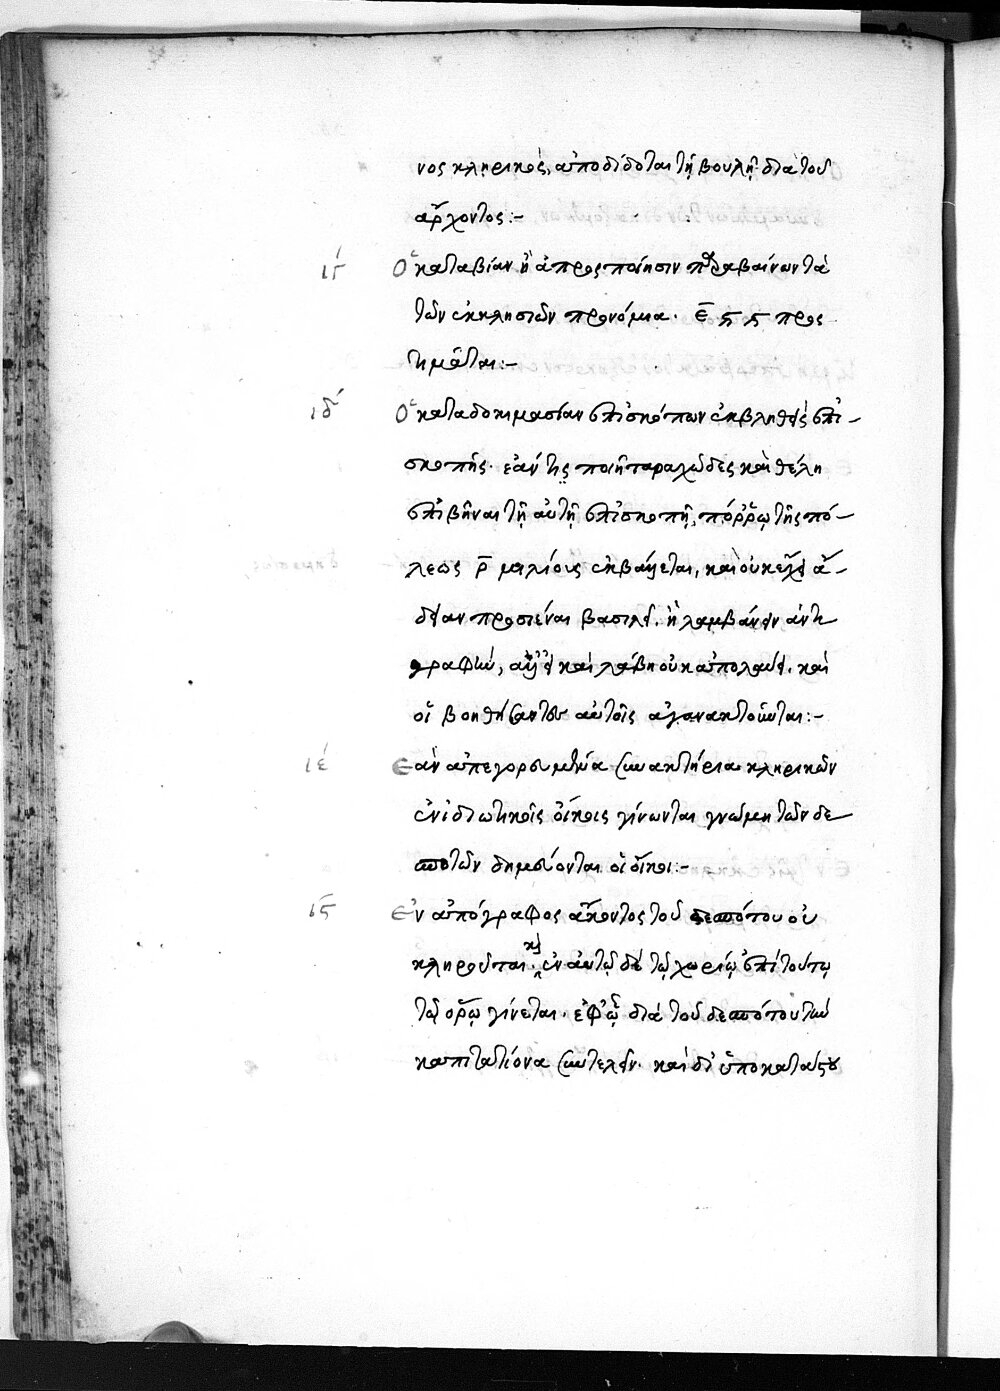 νος κληρικὸς, ἀποδίδοται τῇ βουλῇ διὰ τοῦ
ἄρχοντος:-
ιγ Ὁ κατὰ βίαν ἢ ἁπροσποίησιν παραβαίνων τὰ
τῶν ἐκκλησιῶν προνόμια. ε προς
τιμᾶται:-
ιδ Ὁ κατὰ δοκιμασίαν ἐπισκόπων ἐκβληθεὶς ἐπι-
σκοπῆς. ἐάν τις ποιῇ ταραχῶδες καὶ θέλῃ
ἐπιβῆναι τῇ αὐτῇ ἐπισκοπῇ, πόρρω τῆς πό-
λεως ρ μιλίοις ἐκβάλλεται, καὶ οὐκ ἔχει ἄ-
δειαν προσιέναι βασιλεῖ. ἢ λαμβάνειν ἀντι
γραφὴν, ἀλλ' εἰ καὶ λάβῃ οὐκ ἀπολαύει. καὶ
οἱ βοηθήσαντες αὐτοῖς ἀγανακτοῦνται:-
ιε Ἐὰν ἀπηγορευμένα συνακτήρια κληρικῶν
ἐν ἰδιωτικοῖς οἴκοις γίνωνται γνώμῃ τῶν δε
σποτῶν δημεύονται οἱ οἶκοι:-
ις Ἐναπόγραφος ἄκοντος τοῦ δεσπότου οὐ
κληροῦται. ἐν αὐτῷ δὲ τῷ χωρίῳ ἐπὶ τούτῳ
τῷ ὅρῳ γίνεται. ἐφ' ᾧ διὰ τοῦ δεσπότου τὴν
καπιτατιόνα συντελεῖν. καὶ δι' ὑποκατάστου